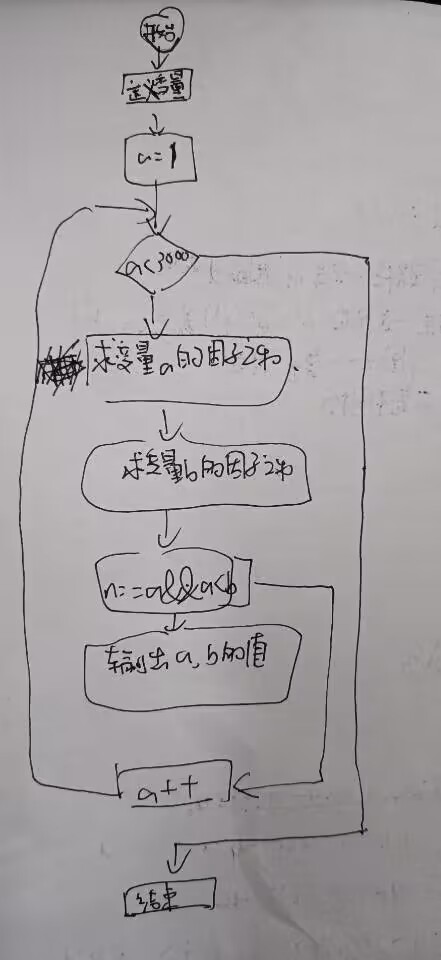 开始
定义变量
a=1
a<3000
求变量a的因子之和
求变量b的因子之和
n==a&&a<b
输出a,b的值
a++
结束